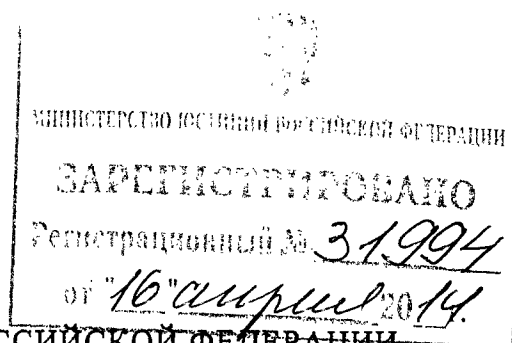 МИНИСТЕРСТВО ЮСТИЦИИ РОССИЙСКОЙ ФЕДЕРАЦИИ
ЗАРЕГИСТРИРОВАНО
Регистрационный № 31994
от "16" апреля 2014.
РОССИЙСКОЙ ФЕДЕРАЦИИ